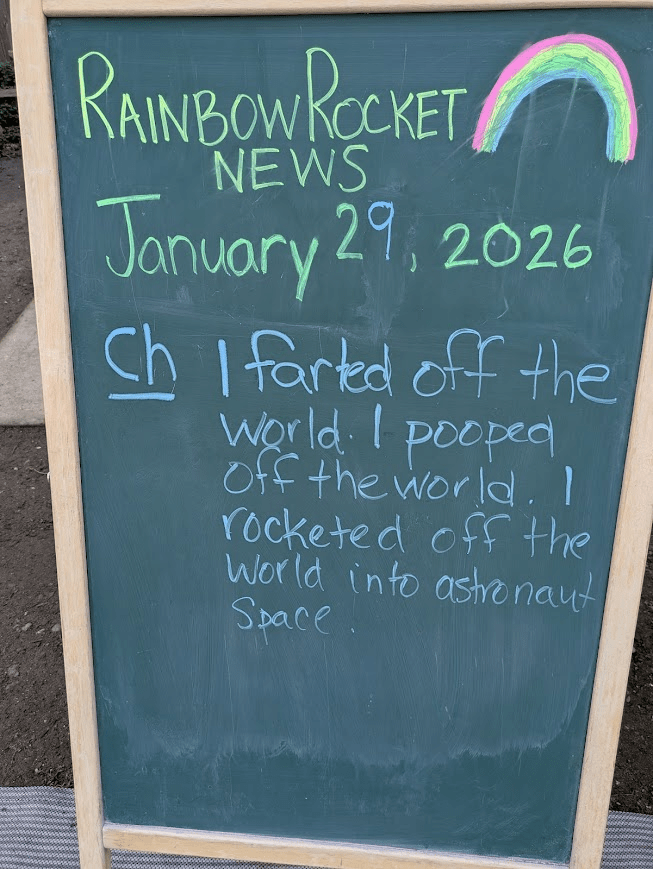 RAINBOWROCKET
NEWS
January 29, 2026
Ch I farted off the
world. I pooped
off the world. I
rocketed off the
world into astronaut
space.